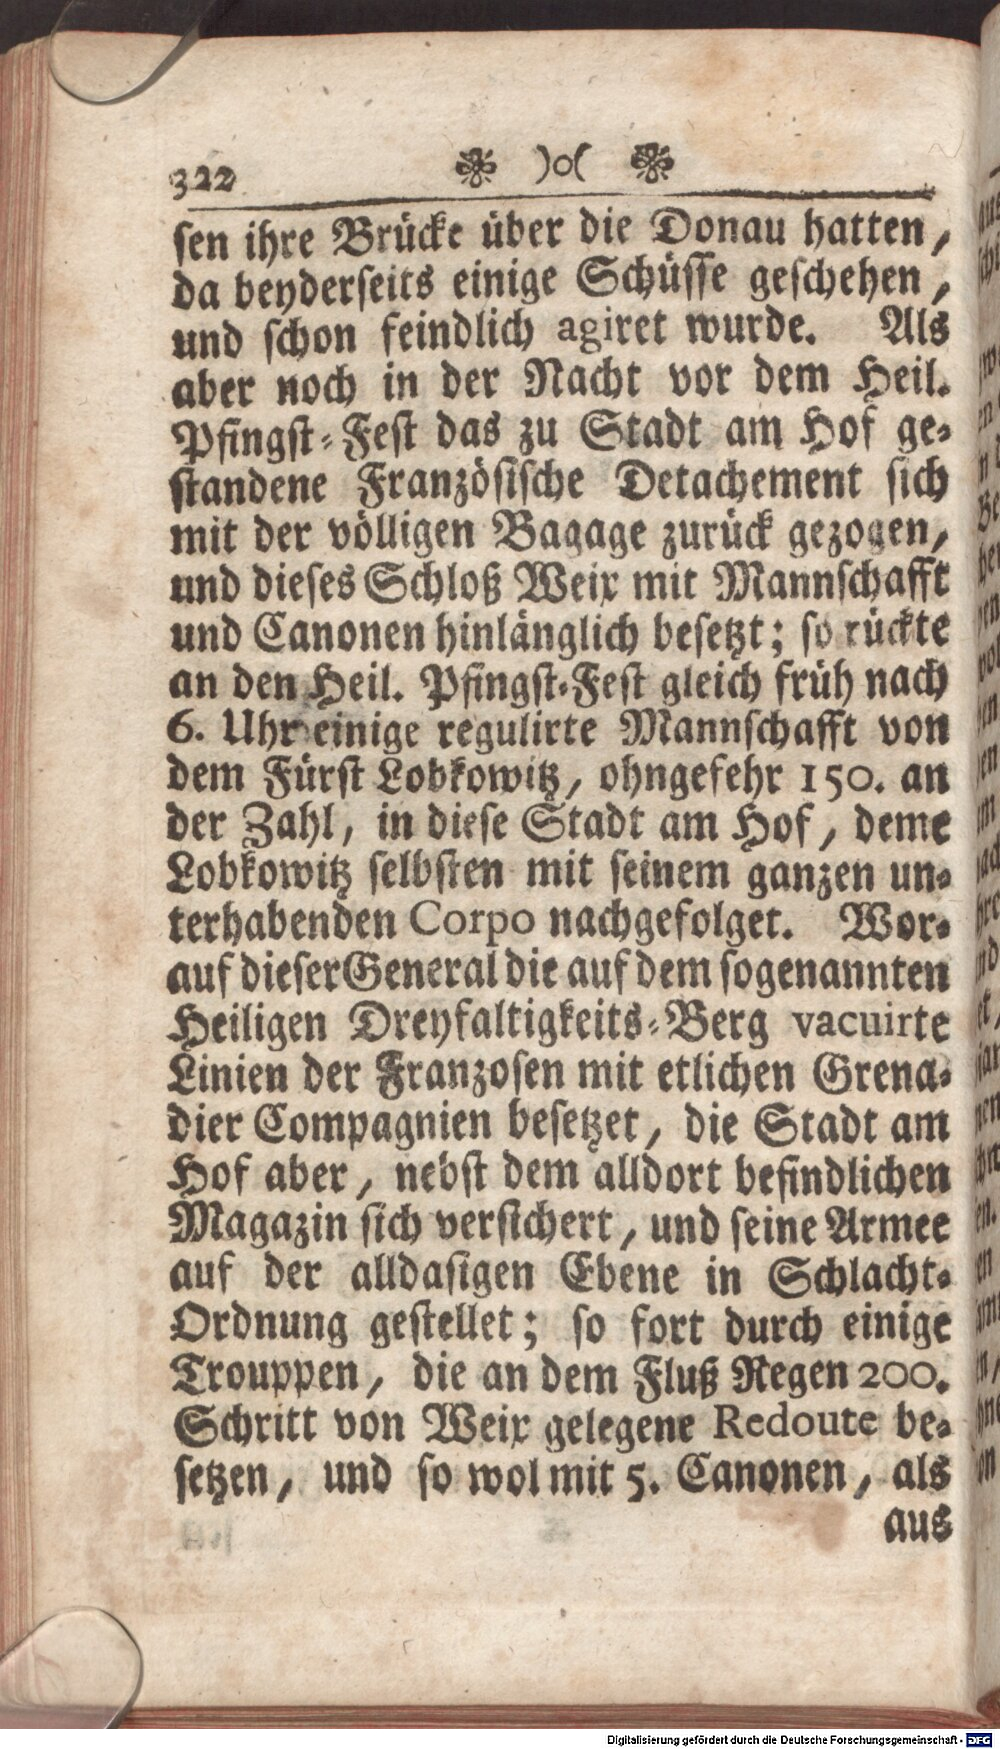 322 )o(
sen ihre Brücke über die Donau hatten,
da beyderseits einige Schüsse geschehen,
und schon feindlich agiret wurde. Als
aber noch in der Nacht vor dem Heil.
Pfingst-Fest das zu Stadt am Hof ge-
standene Französische Detachement sich
mit der völligen Bagage zurück gezogen,
und dieses Schloß Weix mit Mannschafft
und Canonen hinlänglich besetzt; so rückte
an den Heil. Pfingst-Fest gleich früh nach
6. Uhr einige regulirte Mannschafft von
dem Fürst Lobkowitz, ohngefehr 150. an
der Zahl, in diese Stadt am Hof, deme
Lobkowitz selbsten mit seinem ganzen un-
terhabenden Corpo nachgefolget. Wor-
auf dieser General die auf dem sogenannten
Heiligen Dreyfaltigkeits-Berg vacuirte
Linien der Franzosen mit etlichen Grena-
dier Compagnien besetzet, die Stadt am
Hof aber, nebst dem alldort befindlichen
Magazin sich versichert, und seine Armee
auf der alldasigen Ebene in Schlacht-
Ordnung gestellet; so fort durch einige
Trouppen, die an dem Fluß Regen 200.
Schritt von Weix gelegene Redoute be-
setzen, und so wol mit 5. Canonen, als
aus
Digitalisierung gefördert durch die Deutsche Forschungsgemeinschaft - DFG